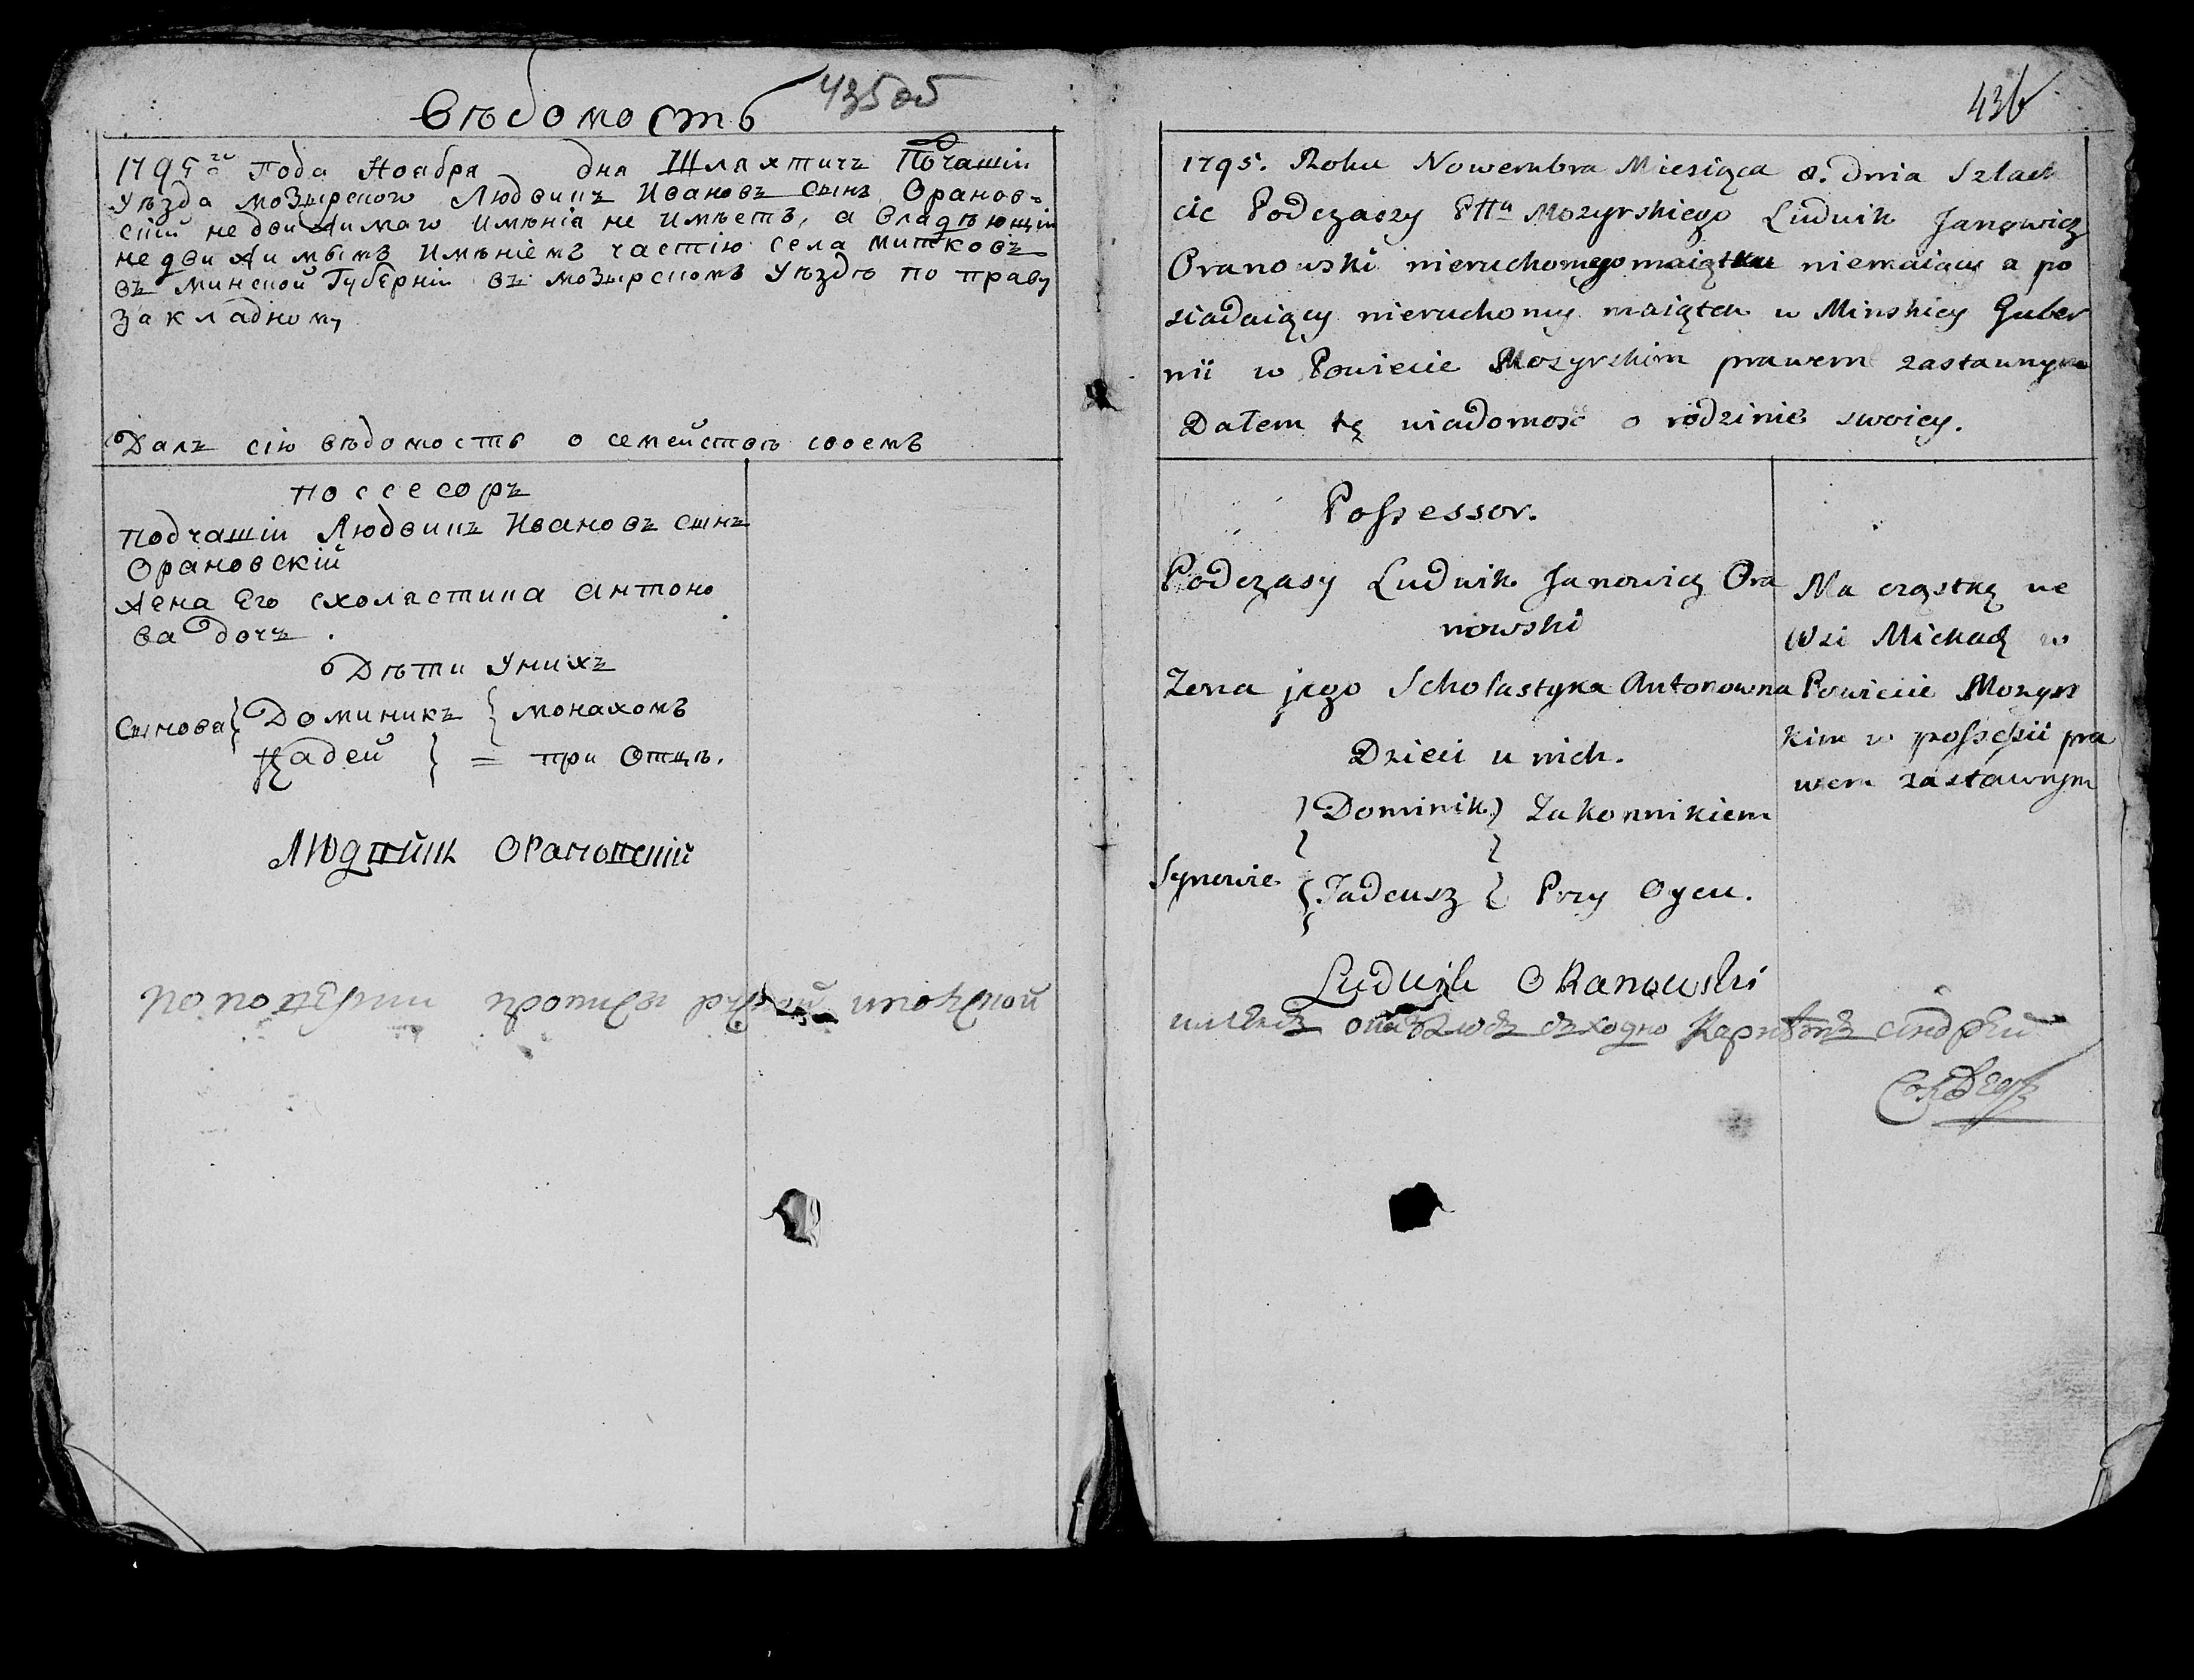 Вѣдомость
435 об
1795го Года Ноября дня Шляхтичь Почашіи
Уѣзда мозырского Людвикъ Ивановъ сынъ Оранов-
скій недвижимаго имѣнія не имѣетъ, а владѣющій
недвижимымъ имѣніемъ частію села митковъ
въ минской Губерніи въ мозырскомъ Уѣздѣ по праву
закладному
Далъ сію вѣдомость о семействѣ своемъ
поссесоръ
подчашіи Людвикъ Ивановъ сынъ
Орановскій
жена Его схоластика антоно
ва дочъ.
Дѣти Унихъ
Сынова { Доминикъ } монахомъ
Фадей } = при Отцѣ.
Людвикъ Орановскій
436
1795. Roku Nowembra Miesiąca 8. dnia Szlach
cic Podczaszy PTTu Mozyrskiego Ludwik Janowicz
Oranowski nieruchomego maiątku niemaiący a po
siadaiący nieruchomy maiątek w Minskiey Guber
nii w Powiecie Mozyrskim prawem zastawnym
Dałem tę wiadomosć o rodzinie swoiey.
Possessor.
Podczasy Ludwik Janowicz Ora
nowski
Zena jego Scholastyka Antonowna
Dzieci u nich.
Dominik } Zakonnikiem
Synowie
{ Tadeusz } Przy Oycu.
Ma cząstkę we
Wsi Mickach w
Powiecie Mozyrs
kim w possessii pra
wem zastawnym
Ludwik Oranowski
сходно